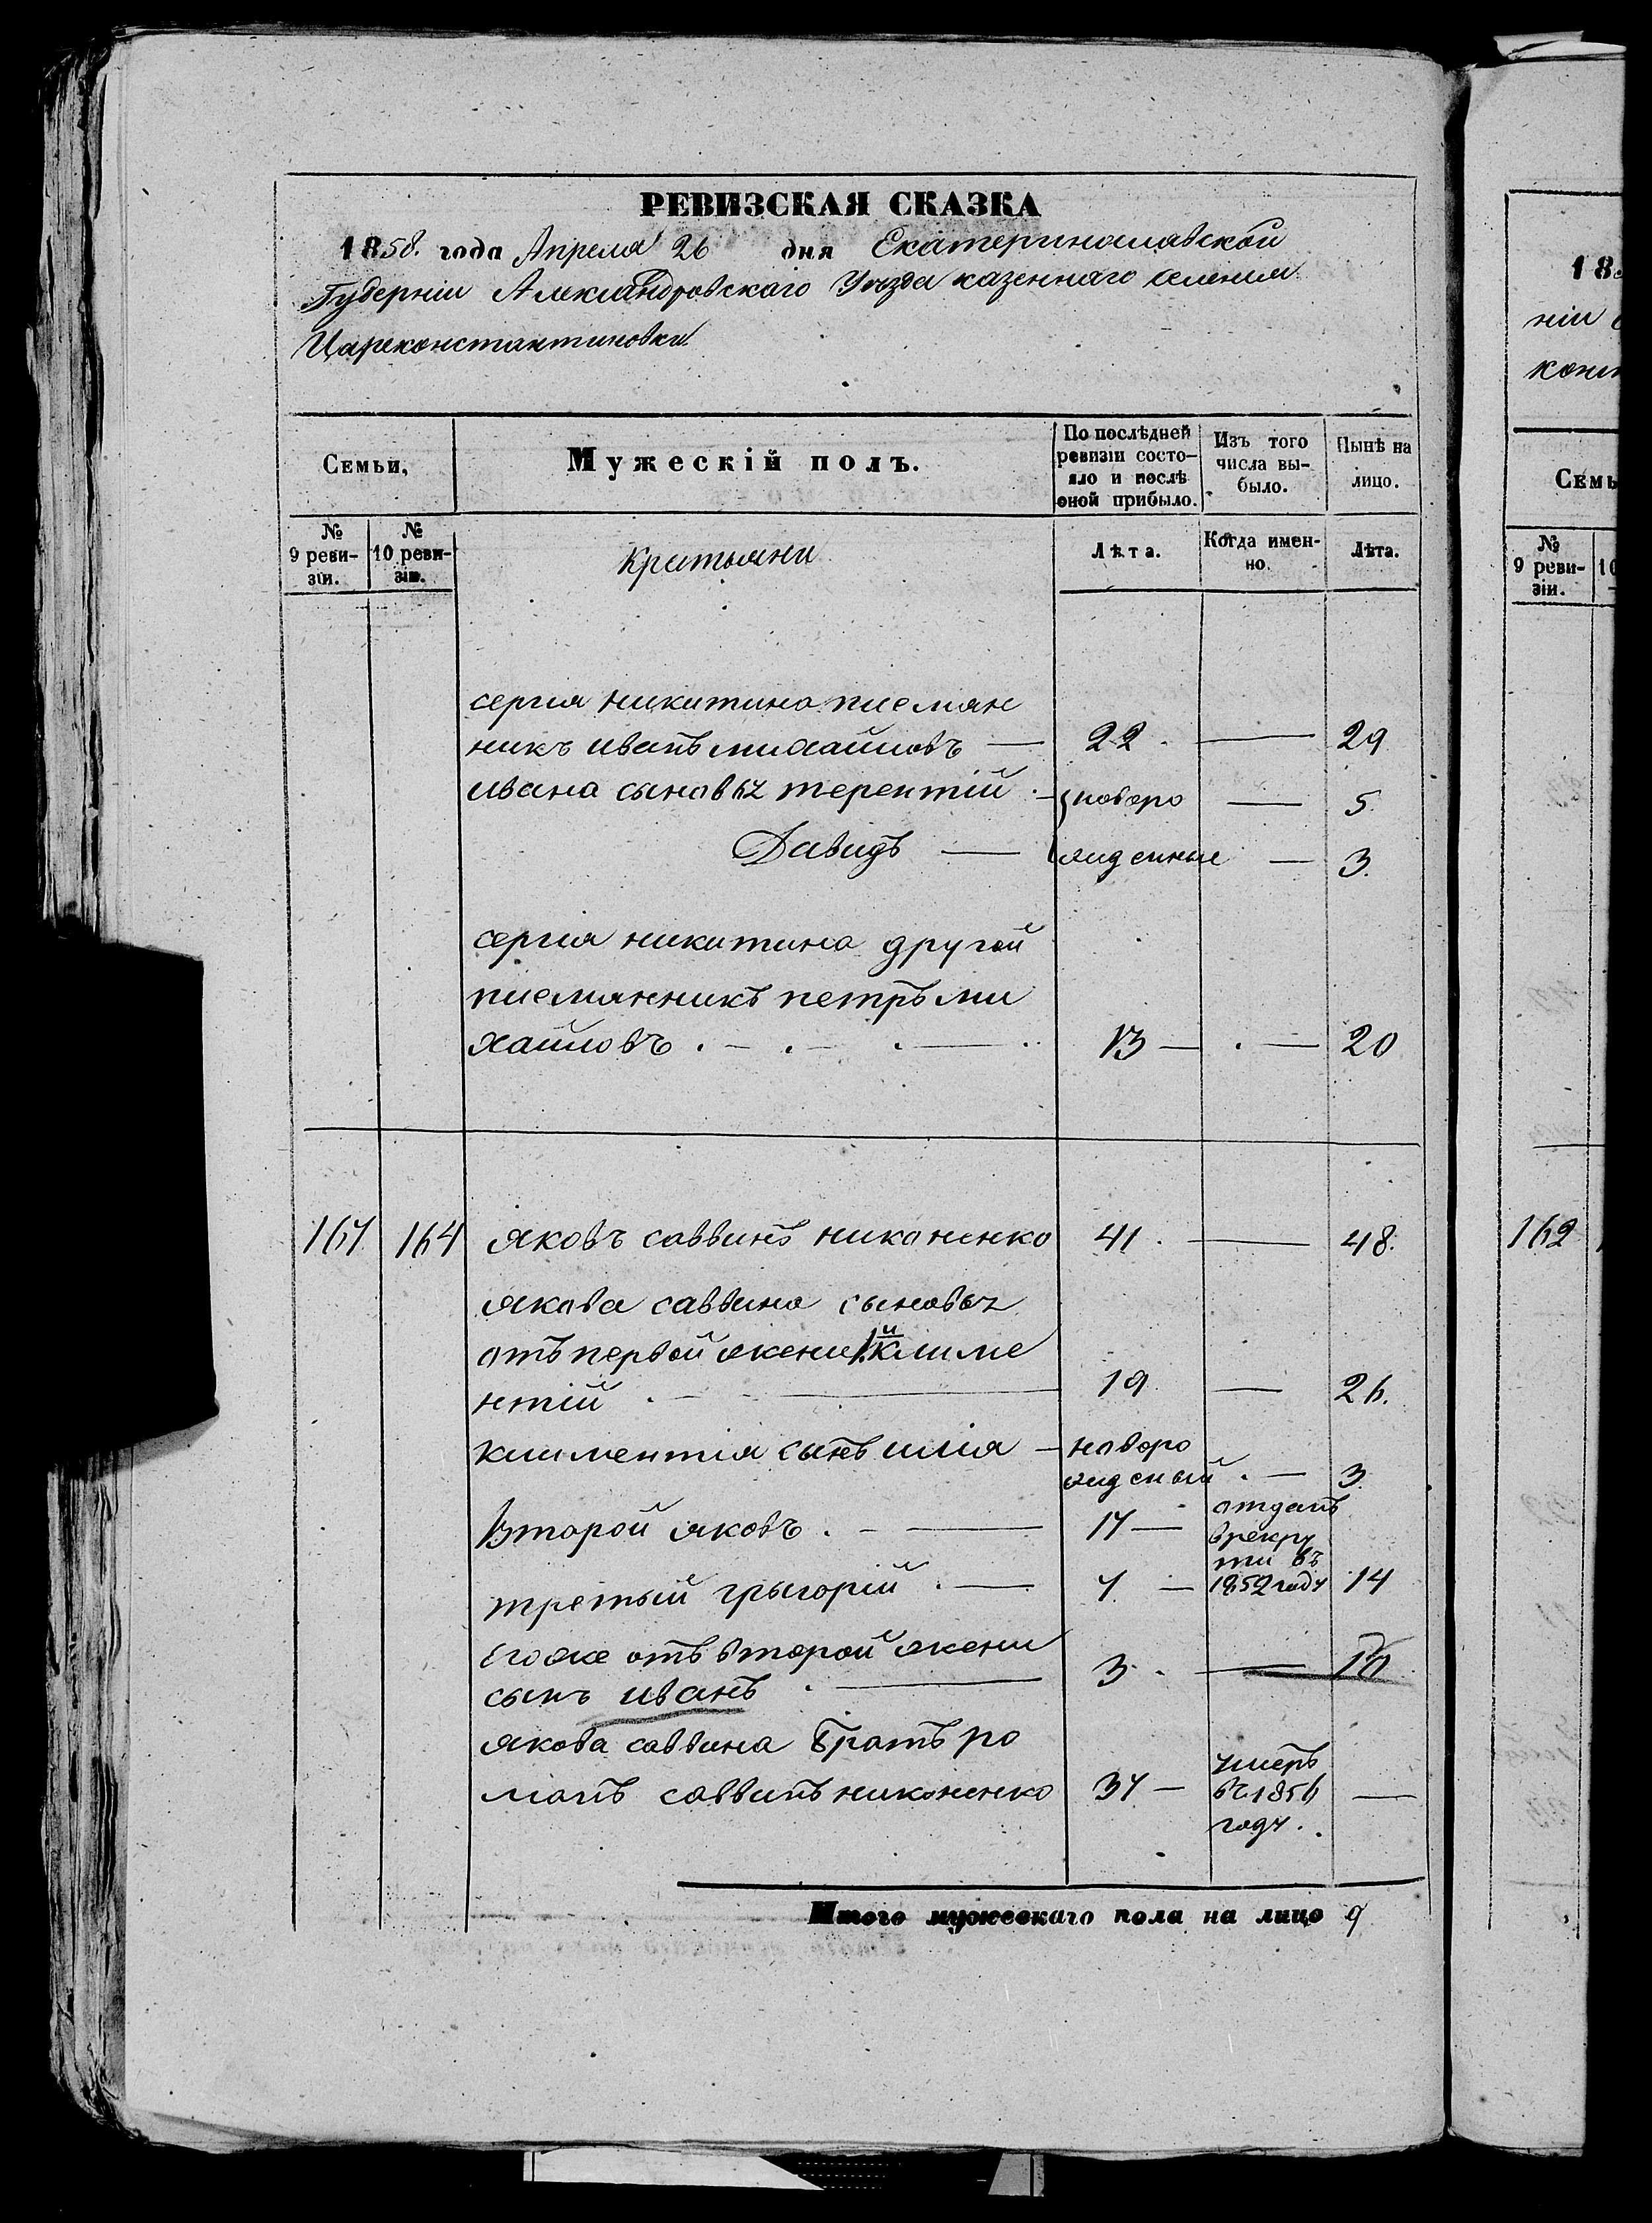 РЕВИЗСКАЯ СКАЗКА
1858. года Апреля 26 дня Екатеринославской
Губерніи Александровскаго Уѣзда казеннаго селенія
Цареконстантиновки
Семьи,
Мужескій полъ.
По послѣдней ревизіи состо-
яло и послѣ
оной прибыло.
Изъ того
числа вы-
было.
Нынѣ на
лицо.
№
9 реви-
зіи.
№
10 реви-
зіи.
Крестьяни
Лѣта.
Когда имен-
но.
Лѣта.
сергія никитина племян
никъ иванъ михайловъ — 22 — 29
ивана сыновья терентій — новоро — 5
Давидъ — жденные — 3.
сергія никитина другой
племянникъ петръ ми
хайловъ 13 — 20
167 164 яковъ саввинъ никоненко 41 — 48.
якова саввина сыновья
отъ первой жены 1й климе
нтій 19 — 26.
климентія сынъ илія — новоро
жденый — 3
второй яковъ 17 — отданъ
врекру
ти въ
1852 году
третый грыгорій 7 — 14
егоже отъ второй жени
сынъ иванъ 3 — 10
якова саввина братъ ро
манъ саввинъ никоненко 37 — умеръ
въ 1856
году.
Итого мужескаго пола на лицо 9
18
ніи
Семь
№
9 реви-
зіи.
10
162